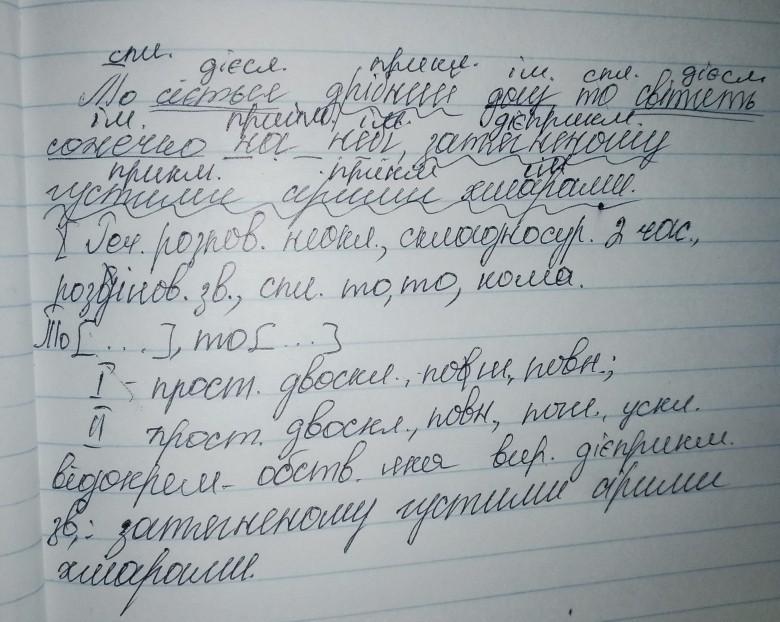 спл. дієсл. прикм. ім. спл. дієсл.
То сіється дрібний дощ то світить
ім. прийм. ім. дієприкм.
сонечко на небі, затягненому
прикм. прикм. ім.
густими сірими хмарами.
[ Реч. розпов. неокл., складносур. 2 час.,
розділов. зв., спл. то, то, кома.
То [. . . ], то [. . .]
I - прост. двоскл., пош, повн.;
II прост. двоскл., повн, пош., ускл.
відокрем- обств. яка вир. дієприкм.
зв,: затягненому густими сірими
хмарами.